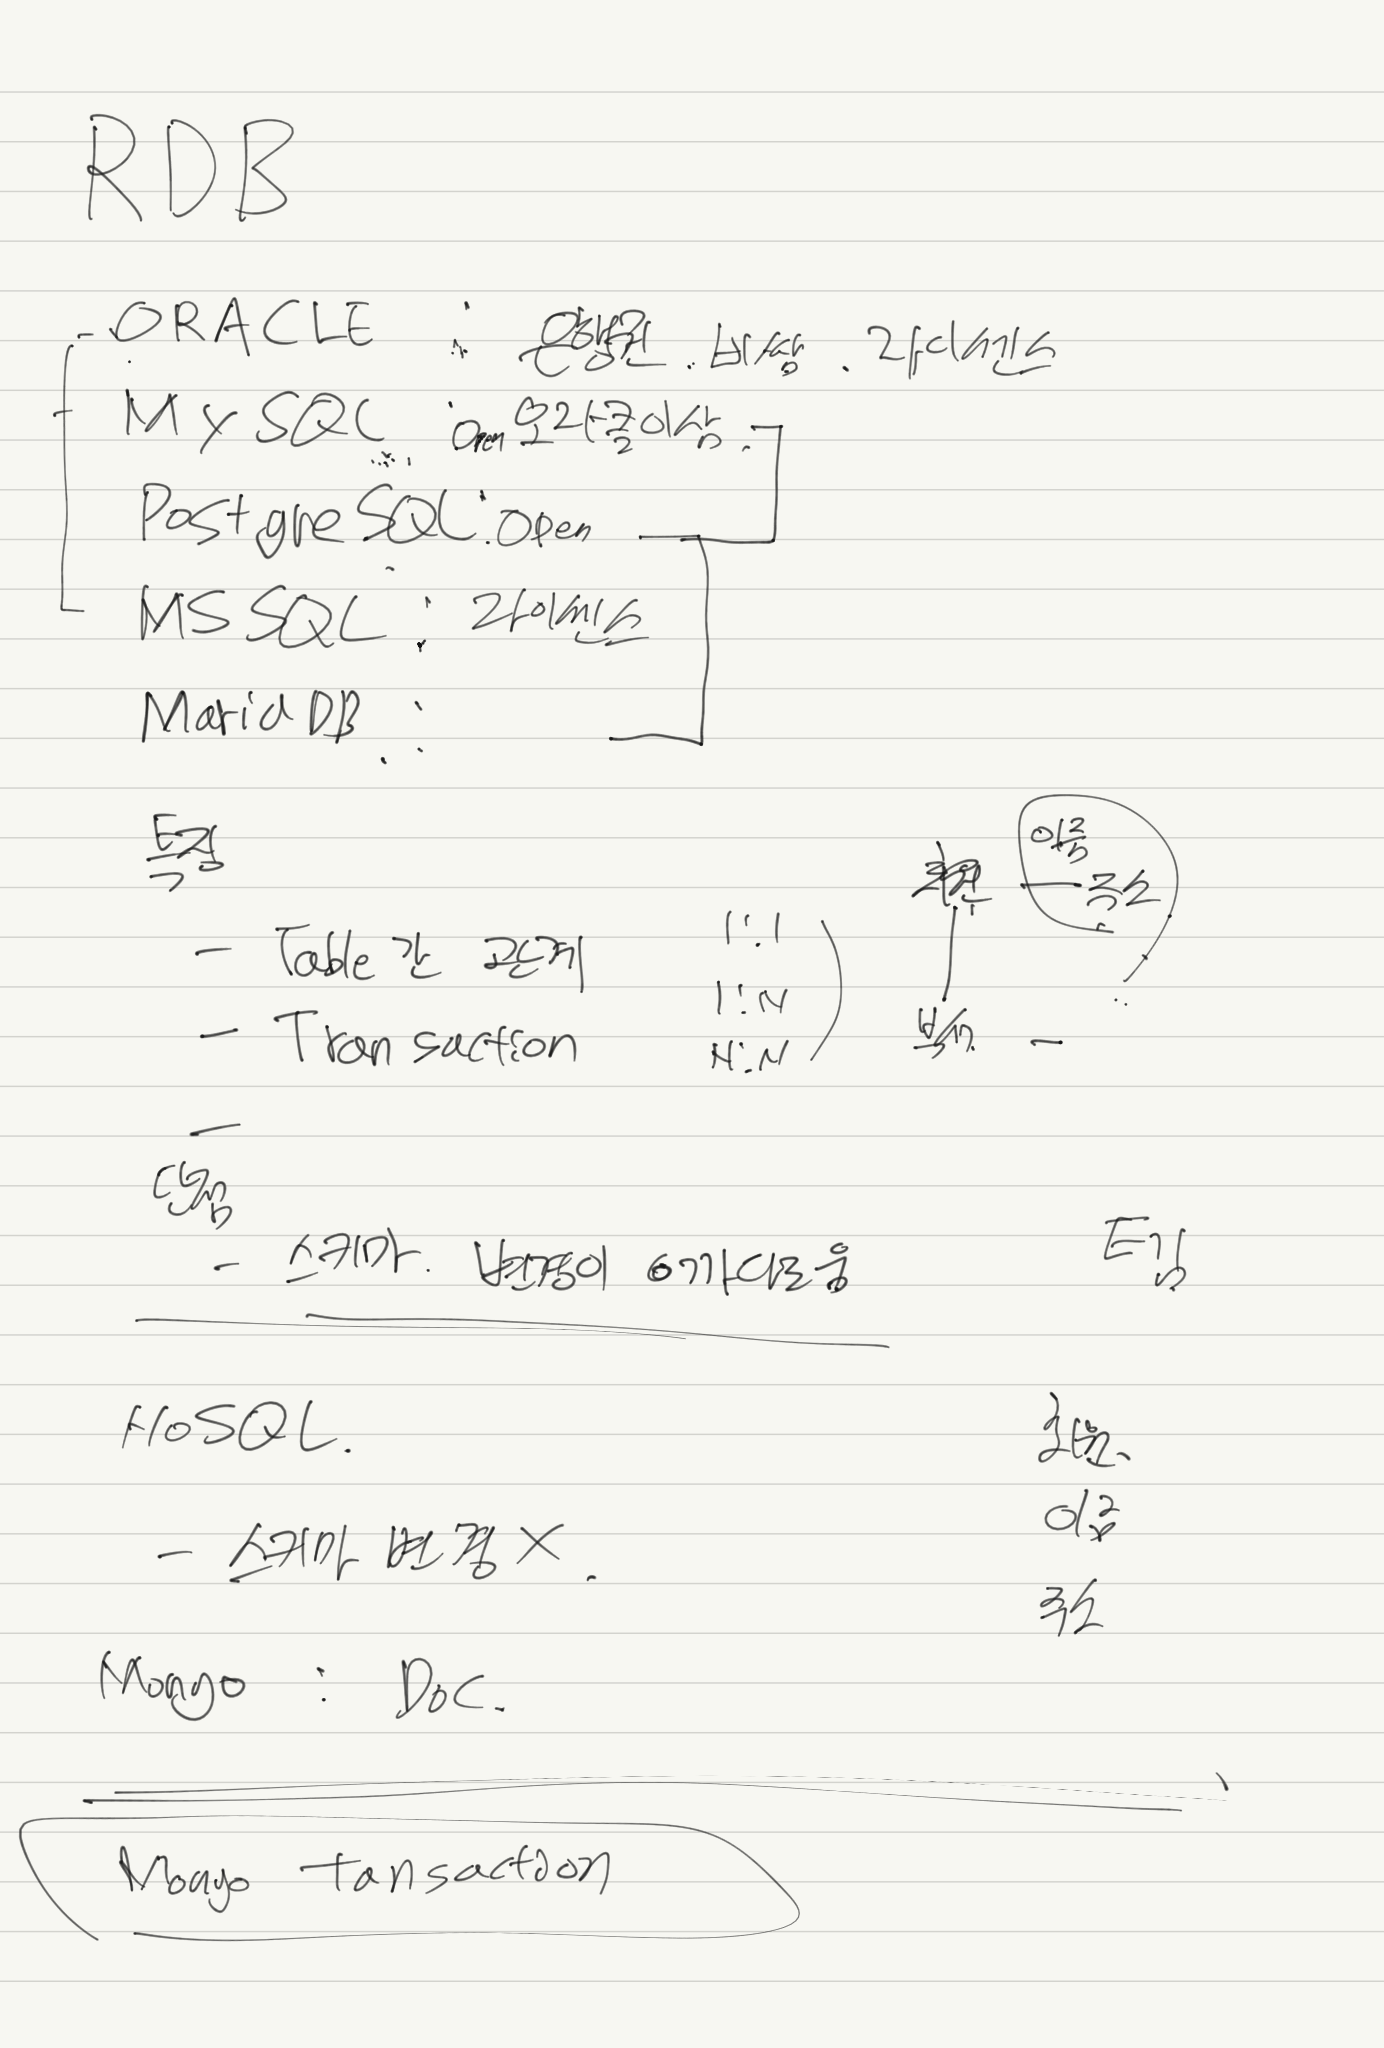 RDB
- ORACLE : 은행권. 비쌈. 라이센스
MySQL : Open 오라클이삼.
PostgreSQL : Open
MSSQL : 라이센스
MariaDB :
특징
이름
회원 — 주소
- Table 간 관계 1:1
1:N
- Transaction N:N
-
단점
- 스키마. 변경이 까다로움
E김
NoSQL.
회원.
이름
- 스키마 변경 X.
주소
Mongo : Doc.
Mongo tansaction